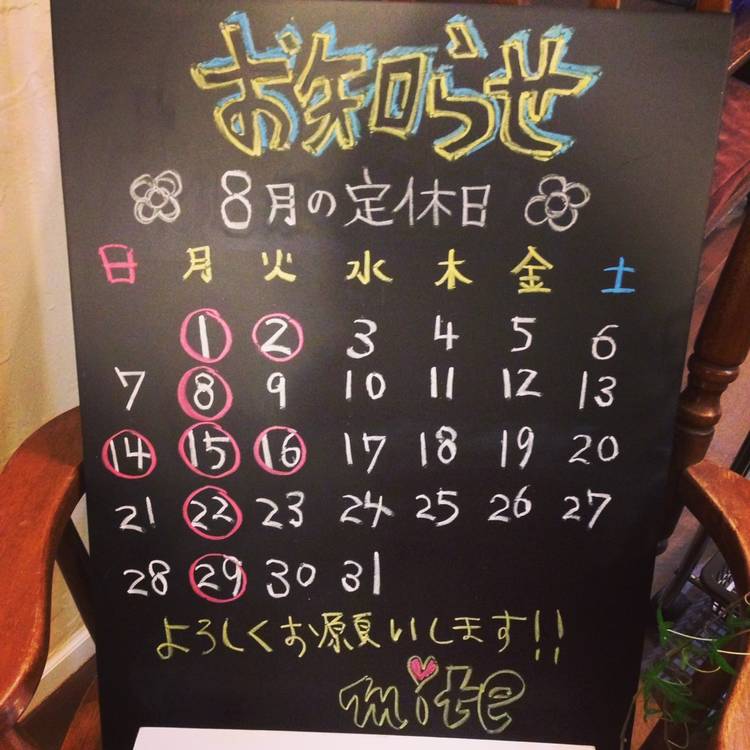 お知らせ
8月の定休日
日 月 火 水 木 金 土
1 2 3 4 5 6
7 8 9 10 11 12 13
14 15 16 17 18 19 20
21 22 23 24 25 26 27
28 29 30 31
よろしくお願いします!!
mite